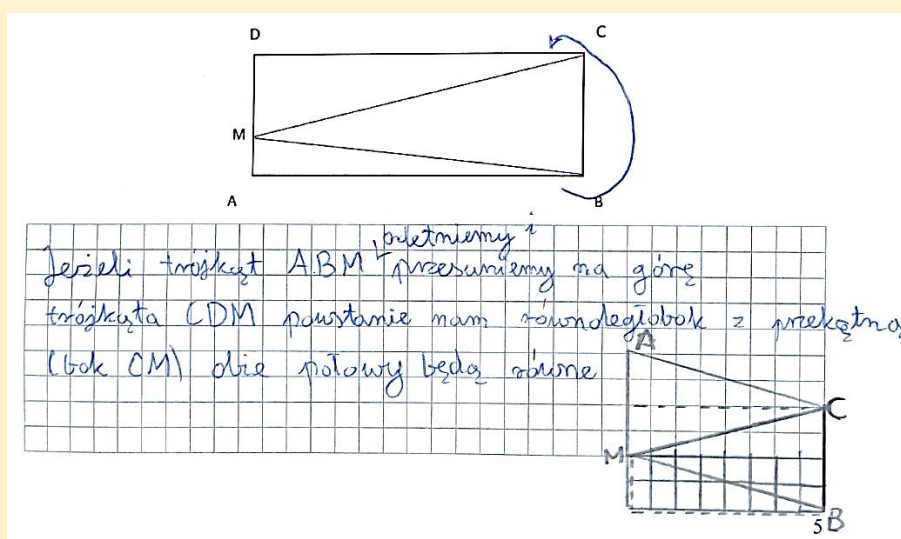 D
C
M
A
B
Jeżeli trójkąt ABM odetniemy i przesuniemy na górę
trójkąta CDM powstanie nam równoległobok z przekątną
(bok CM) obie połowy będą równe
A
C
M
5
B